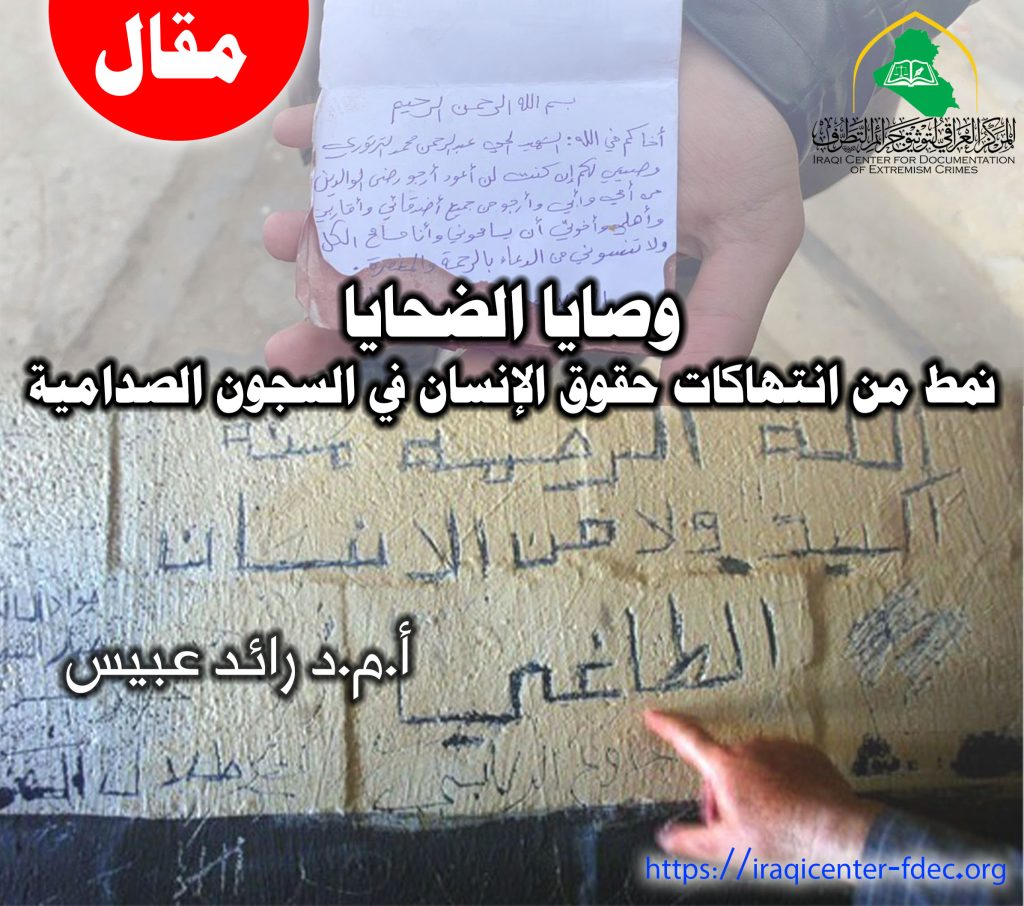 مقال
المركز العراقي لتوثيق جرائم التطرف
IRAQI CENTER FOR DOCUMENTATION
OF EXTREMISM CRIMES
بسم الله الرحمن الرحيم
أخاكم في الله: الشهيد الحي عبدالرحمن محمد
وصيتي لكم إن كنت لن أعود أرجو رضى الوالدين
من أمي وأبي وأرجو من جميع أصدقائي وأقاربي
وأهلي وأخوتي أن يسامحوني وأنا مسامح الكل
ولا تنسوني من الدعاء بالرحمة والمغفرة.
وصايا الضحايا
نمط من انتهاكات حقوق الإنسان في السجون الصدامية
الله الرحمة
ولا من الانسان
الطاغي
أ.م.د رائد عبيس
https://iraqicenter-fdec.org